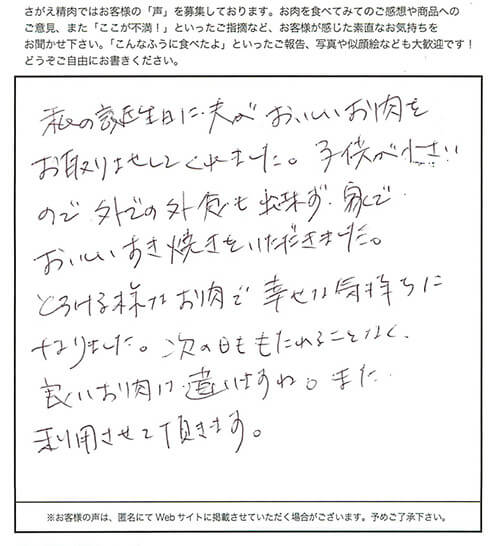 さがえ精肉ではお客様の「声」を募集しております。お肉を食べてみてのご感想や商品への
ご意見、また「ここが不満！」といったご指摘など、お客様が感じた素直なお気持ちを
お聞かせ下さい。「こんなふうに食べたよ」といったご報告、写真や似顔絵なども大歓迎です！
どうぞご自由にお書きください。
私の誕生日に夫がおいしいお肉を
お取りよせしてくれました。子供が小さい
ので外での外食も出来ず、家で
おいしいすき焼きをいただきました。
とろける様なお肉で幸せな気持ちに
なりました。次の日ももたれることなく、
良いお肉は違いますね。また
利用させて頂きます。
※お客様の声は、匿名にてWebサイトに掲載させていただく場合がございます。予めご了承下さい。